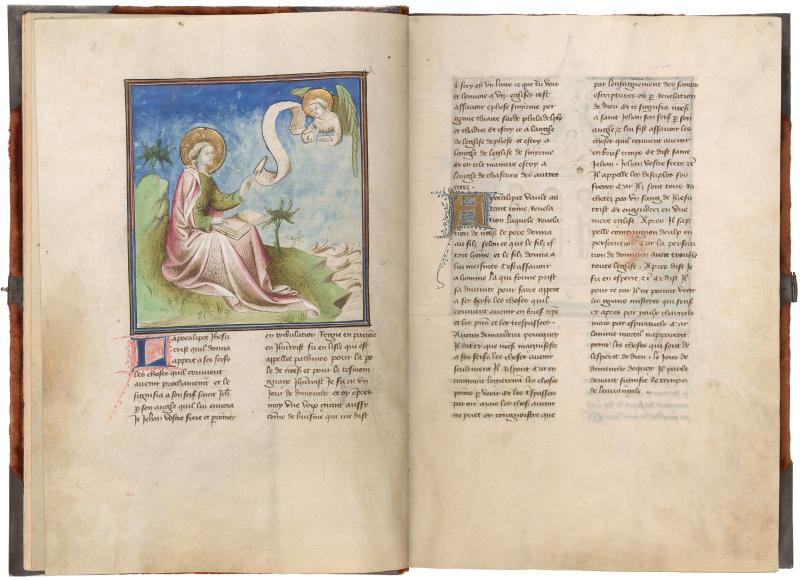 Lapocalipce Ihesu
crist quil donna
appert a son serf
les choses quil couuient
auenir prochament et le
signifia a son serf saint Jeh
p son angle quil lui enuoia
Je Jehan vostre frere et
en tribulation Regne en
en Jhucrist fu en lisle qui est
appellet pathmos pour la
le de et pour le tesmoin
Jhucrist Je fu en vn
Jour de dimenche et oy apres
moy vne voix grant aussy
come de buisine qui me dist
Escry en vn liure ce que tu vois
et lenuoie a vij eglises cest
assauoir ephese smyrne per
game thiatire sarde philadelphe
et et escry a langle
de leglise dephese et escry a
langle de leglise de smyrne
et en tele maniere escry a
langle de chascune des autres
Apocalipce vault au
tant come Reuela
tion laquelle Reuela
tion de le pere donna
au filz selon ce que le filz est
tout home et le filz donna a
lui meismes Cest assauoir
a lomme la qui forme prist
sa diuinite pour faire appert
a ses serfs les choses quil
couuient auenir en brief teps
et les et les trespassees
Aucun demandent pourquoy
Il dit cy que magnifeste
a ses serfs les choses auenir
seulement Il Respont Car en
les choses
p veoir et les trespassees
par oir mais les choses auenir
ne puet on congnoistre que
par lensignement des saintes
escriptures ou p Reuelation
de dieu Et ce signifia
a saint Jehan son serf p son
angle lui fist assauoir les
choses qui couuient auenir
en brief temps Et dist saint
Jehan Jehan vostre frere etc
Il appelle les disciples ses
freres Car Ilz sont tous Ra
chetez par vn sang de Jhesu
crist et engendrez en vne
mere eglise Apres Il sap
pelle compaignon en
persecution Car la persecu
tion de domicien auoit trouble
toute leglise Apres dist Je
fu en esperit etc Et dist Il
pour ce car Il ne pouoit veoir
les grans misteres qui sens
cy apres par yeulx charnels
mais par espirituels Car
homme mortel napparcoit
point les choses qui sont de
lesperit de dieu le Jour de
dimenche dequoy Il parle
deuant signifie le temps
de leuuangile